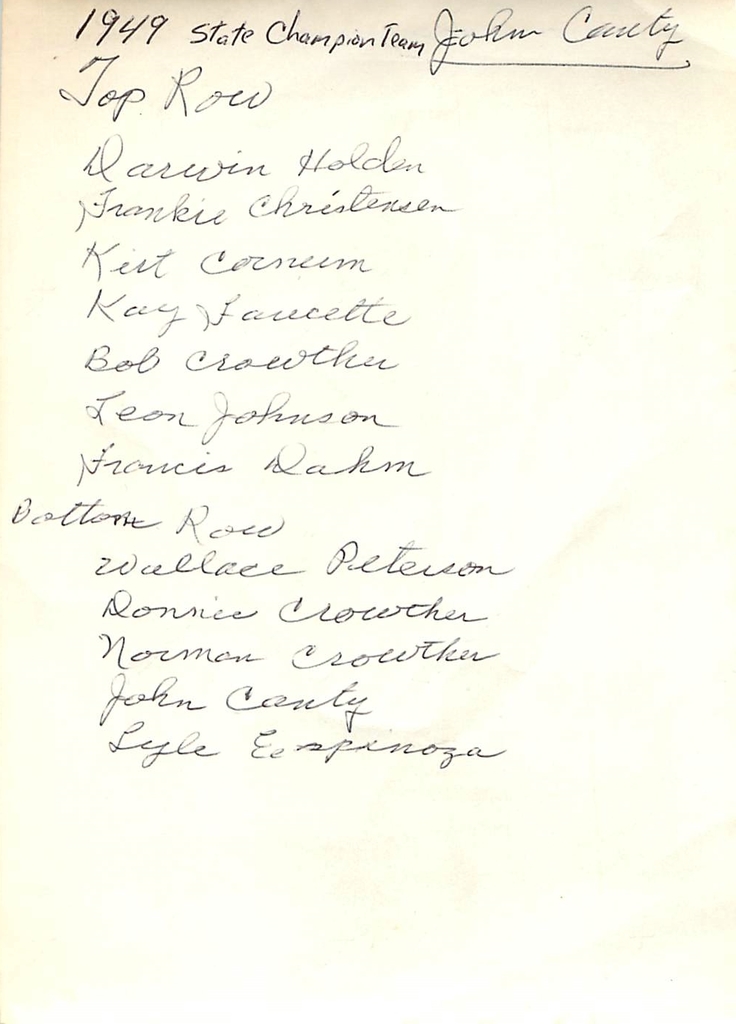 1949 State Champion Team John Canty
Top Row
Darwin Holden
Frankie Christensen
Kirt Corneum
Kay Faucette
Bob Crowther
Leon Johnson
Francis Dahm
Bottom Row
Wallace Peterson
Donnie Crowther
Norman Crowther
John Canty
Lyle Espinoza